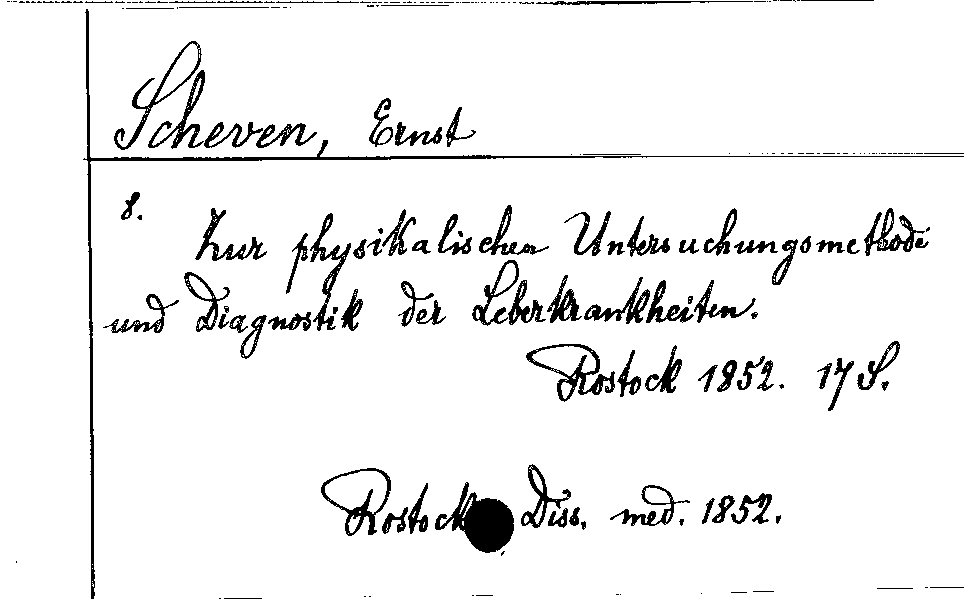 Scheven, Ernst
8. Zur physikalischen Untersuchungsmethode
und Diagnostik der Leberkrankheiten.
Rostock 1852. 17 S.
Rostock Diss. med. 1852.